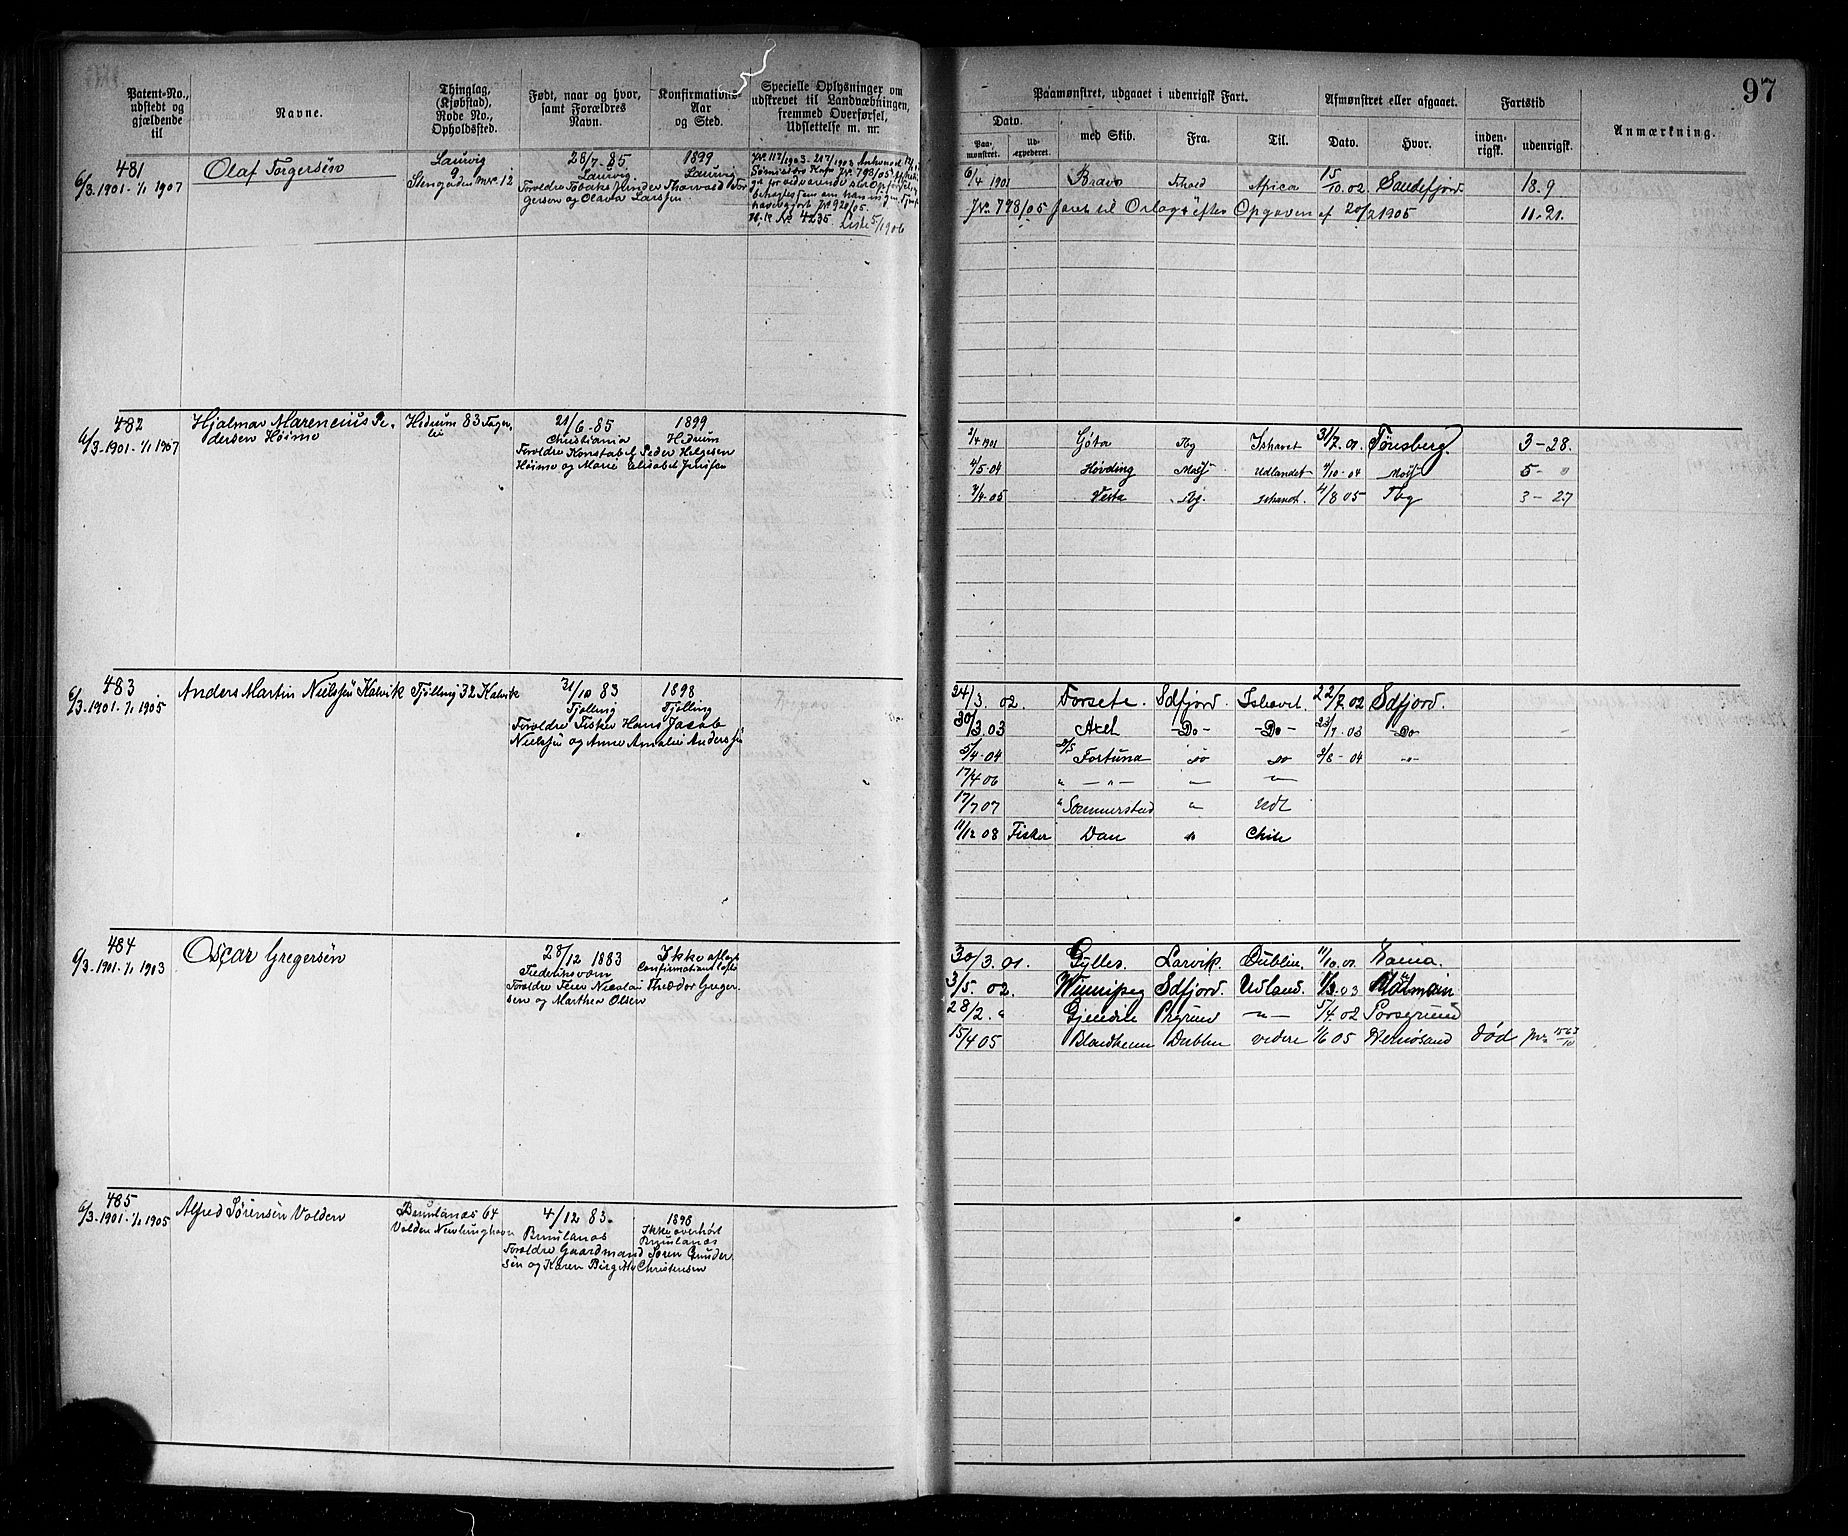 97
Patent-No., udstedt og gjældende til
Navne.
Thinglag, (Kjøbstad), Rode No., Opholdssted.
Født, naar og hvor, samt Forældres Navn.
Konfirmations- Aar og Sted.
Specielle Oplysninger om udskrevet til Landværbningen, fremmed Overførsel, Udslettelse m. m.
Paamønstret, udgaaet i udenrigsk Fart.
Afmønstret eller afgaaet.
Fartstid
Anmærkning.
Dato.
Paa- mønstret.
Ud- expederet.
med Skib.
Fra.
Til.
Dato.
Hvor.
inden- rigsk.
udenrigsk.
481
6/3 1901 - 1/1 1907
Olaf Torgersén
Laurvig
9
Stengaden No. 12
28/7 - 85
Laurvig.
Forældre
Thorvald Tor-
gersen og Olavia Larssen.
1899
Laurvig
J№ 798/05
J№ 920/05.
№ 4235. Liste 5/1906
6/4 1901 Bravo Africa 15/10. 02. Sandefjord 18. 9
J№ 798/05 til Orlogs efter Opgaven af 20/2 1905 11. 21.
482
6/3 - 1901 - 1/1 1907
Hjalmar Marencius Pe-
dersen Høimo
Hedrum 83 Fager-
lie
21/6 - 85
Christiania
Forældre Konstabel Peder Helgesen
Høimo og Marie Elisabet
1899
Hedrum
2/4 1901 Gøta Tbg Ishavet 31/7. 01. Tønsberg. 3 - 28.
4/5 - 04 Høvding Udlandet 4/10 - 04 5 - "
3/4 - 05 Vesta Tbg. Ishavet. 4/8 05 Tbg 3 - 27
483
6/3 - 1901 - 1/1 1905
Anders Martin Nielssen Kalvik
Tjølling 32 Kalvik
31/10 83
Tjølling
Forældre Fisker Hans Jacob
Nielssen og Anne Amalie Anderssen
1898
Tjølling
24/3. 02. Forsete. Sdfjord. Ishavet. 22/7. 02 Sdfjord.
30/3. 03 Axel - Do - - Do - 23/7 - 03 - Do
5/4 - 04 Fortuna do do 2/8 - 04 - " -
17/4 06 " - " - - " - - " -
17/7 07 " " Udl
11/12 08 Fisker Dan " Chile
484
6/3 - 1901 - 1/1 1903
Oscar Gregersén
28/12 1883
Frederiksværn
Forældre Feier Nicolai Theodor Greger-
sen og Marthea Olsen
Ikke aflagt
Confirmationsløfte
30/3. 01. Gylles. Larvik. Dublin. 11/10. 01.
3/5. 02. Winnipeg Sdfjord. Udland.
28/2. " Pregrund - " - 5/4. 02 Porsgrund
15/4 05 Blandheim Dublin videre 1/6 05 Hernøsand død J№ 1563/10
485
6/3 - 1901 - 1/1 1905
Alfred Sørensen Volden
Brunlanæs 64
Volden Nevlunghavn
4/12 83.
Brunlanæs
Forældre Gaardmand Søren Gunder
sen og Karen Birgitte Christensen
1898
Ikke overhørt
Brunlanæs